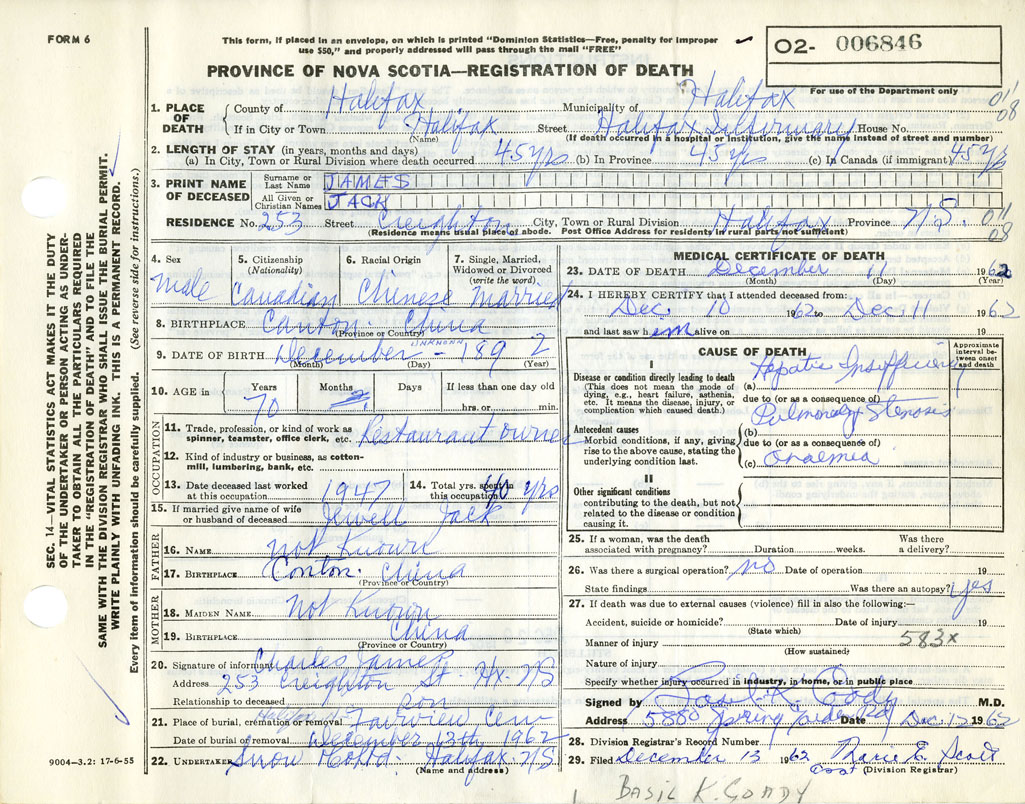 FORM 6
This form, if placed in an envelope, on which is printed "Dominion Statistics—Free, penalty for improper
use $50," and properly addressed will pass through the mail "FREE"
O2- 006846
For use of the Department only
PROVINCE OF NOVA SCOTIA—REGISTRATION OF DEATH
SEC. 14—VITAL STATISTICS ACT MAKES IT THE DUTY
OF THE UNDERTAKER OR PERSON ACTING AS UNDER-
TAKER TO OBTAIN ALL THE PARTICULARS REQUIRED
IN THE "REGISTRATION OF DEATH" AND TO FILE THE
SAME WITH THE DIVISION REGISTRAR WHO SHALL ISSUE THE BURIAL PERMIT.
WRITE PLAINLY WITH UNFADING INK. THIS IS A PERMANENT RECORD.
Every item of information should be carefully supplied. (See reverse side for instructions.)
1. PLACE OF DEATH
County of Halifax Municipality of Halifax
011
08
If in City or Town Halifax Street Halifax Infirmary House No.
(Name) (If death occurred in a hospital or Institution, give the name instead of street and number)
2. LENGTH OF STAY (in years, months and days)
(a) In City, Town or Rural Division where death occurred 45 yrs (b) In Province 45 yrs (c) In Canada (if immigrant) 45 yrs
3. PRINT NAME OF DECEASED
Surname or Last Name JAMES
All Given or Christian Names JACK
RESIDENCE No. 253 Street Creighton City, Town or Rural Division Halifax Province N.S.
011
08
(Residence means usual place of abode. Post Office Address for residents in rural parts not sufficient)
4. Sex
Male
5. Citizenship (Nationality)
Canadian
6. Racial Origin
Chinese
7. Single, Married, Widowed or Divorced (write the word)
Married
8. BIRTHPLACE Canton. China
(Province or Country)
9. DATE OF BIRTH December - UNKNOWN 1892
(Month) (Day) (Year)
10. AGE in Years Months Days If less than one day old
70 hrs. or min.
OCCUPATION
11. Trade, profession, or kind of work as
spinner, teamster, office clerk, etc. Restaurant owner
12. Kind of industry or business, as cotton-
mill, lumbering, bank, etc.
13. Date deceased last worked
at this occupation 1947
14. Total yrs. spent in
this occupation yrs
15. If married give name of wife
or husband of deceased Jewell Jack
FATHER
16. NAME not Known
17. BIRTHPLACE Conton. China
(Province or Country)
MOTHER
18. MAIDEN NAME not Known
19. BIRTHPLACE China
(Province or Country)
20. Signature of informant Charles James
Address 253 Creighton St. Hx. NS
Relationship to deceased Son
21. Place of burial, cremation or removal Halifax Fairview Cem
Date of burial or removal December 13th 1962
22. UNDERTAKER Snow Halifax N/S
(Name and address)
MEDICAL CERTIFICATE OF DEATH
23. DATE OF DEATH December 11 1962
(Month) (Day) (Year)
24. I HEREBY CERTIFY that I attended deceased from:
Dec. 10 1962 to Dec. 11 1962
and last saw h im alive on 19
CAUSE OF DEATH
Approximate interval be-
tween onset and death
I
Disease or condition directly leading to death
(This does not mean the mode of
dying, e.g., heart failure, asthenia,
etc. It means the disease, injury, or
complication which caused death.)
(a) Hepatic Insufficiency
due to (or as a consequence of)
Antecedent causes
Morbid conditions, if any, giving
rise to the above cause, stating the
underlying condition last.
(b) Pulmonary Stenosis
due to (or as a consequence of)
(c)
II
Other significant conditions
contributing to the death, but not
related to the disease or condition
causing it.
25. If a woman, was the death
associated with pregnancy? Duration weeks. Was there a delivery?
26. Was there a surgical operation? no Date of operation 19
State findings Was there an autopsy? yes
27. If death was due to external causes (violence) fill in also the following:—
Accident, suicide or homicide? Date of injury 19
(State which)
583x
Manner of injury
(How sustained)
Nature of injury
Specify whether injury occurred in industry, in home, or in public place
Signed by Basil K. Coady M.D.
Address 5880 Spring Garden Rd Date Dec. 12 1962
28. Division Registrar's Record Number
29. Filed December 13 1962 Marie E. Scott
(Division Registrar)
9004—3.2: 17-6-55
BASIL K. COADY